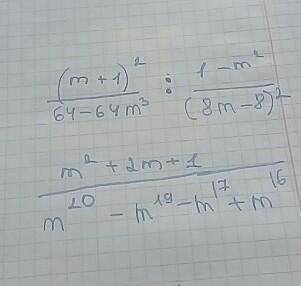 (m + 1)² / 64 - 64m³ : 1 - m² / (8m - 8)²
m² + 2m + 1 / m²⁰ - m¹⁹ - m¹⁷ + m¹⁶